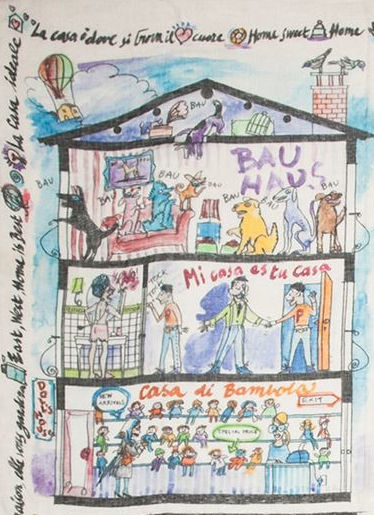 La casa è dove si trova il cuore
Home sweet Home
La Casa ideale
East, West Home is Best
BAU
BAU
HAUS
BAU
BAU
BAU
BAU
BAU
BAU
Mi casa es tu casa
P
P
Casa di Bambola
NEW
ARRIVALS
EXIT
SPECIAL PRICE